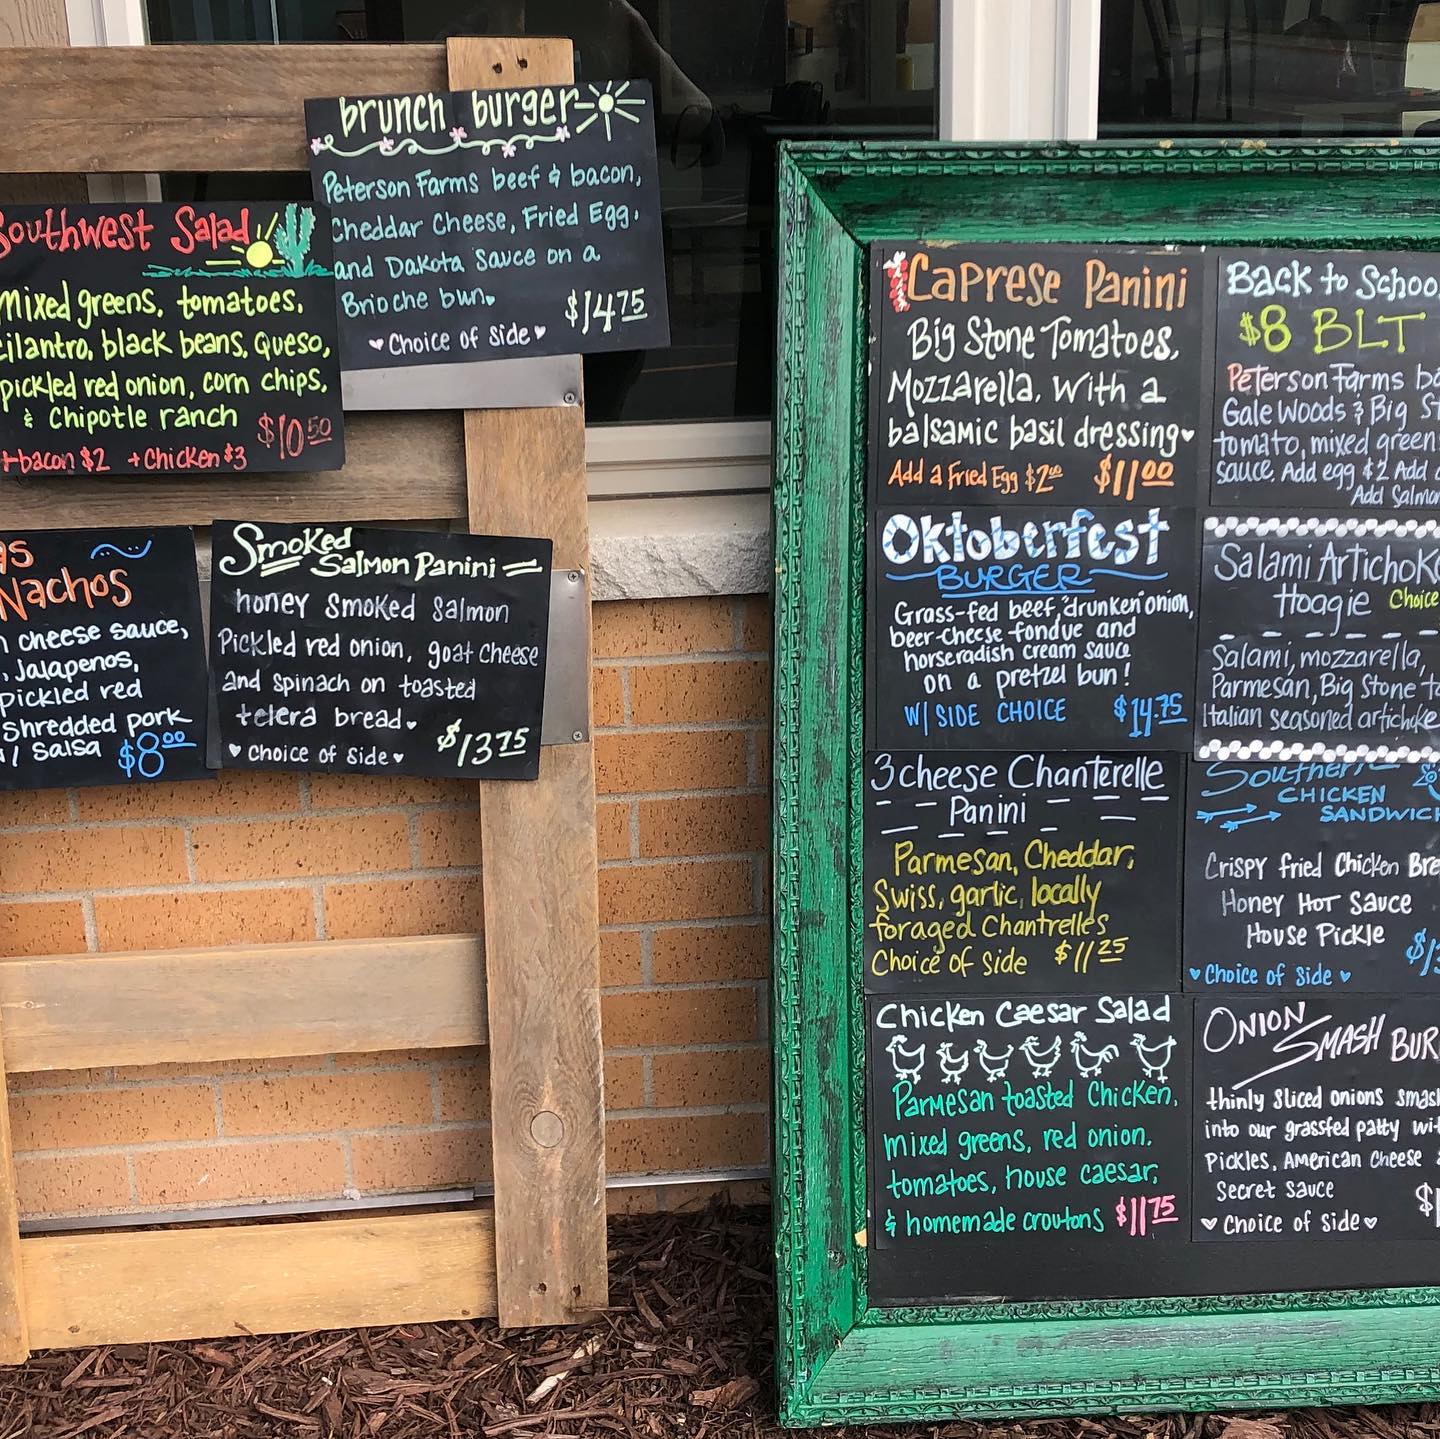 brunch burger
Peterson Farms beef & bacon,
Cheddar Cheese, Fried Egg,
and Dakota Sauce on a
Brioche bun.
$14.75
♥ Choice of Side ♥
Southwest Salad
Mixed greens, tomatoes,
cilantro, black beans, Queso,
pickled red onion, corn chips,
& Chipotle ranch
$10.50
+bacon $2 +Chicken $3
Nachos
cheese sauce,
, Jalapenos,
pickled red
Shredded pork
w/ Salsa $8.00
Smoked
Salmon Panini
honey Smoked Salmon
Pickled red onion, goat cheese
and spinach on toasted
telera bread.
♥ Choice of Side ♥
$13.75
Caprese Panini
Big Stone Tomatoes,
Mozzarella, With a
balsamic basil dressing♥
Add a Fried Egg $2.00 $11.00
Oktoberfest
BURGER
Grass-fed beef, "drunken" onion,
beer-cheese fondue and
horseradish cream sauce
on a pretzel bun!
W/ SIDE CHOICE $14.75
3 cheese Chanterelle
Panini
Parmesan, Cheddar,
Swiss, garlic, locally
foraged Chantrelles
Choice of Side $11.25
Chicken Caesar Salad
Parmesan toasted Chicken,
mixed greens, red onion,
tomatoes, house caesar,
& homemade croutons $11.75
Back to Schoo
$8 BLT
Peterson Farms
Gale Woods & Big
tomato, mixed green
sauce. Add egg $2 Add
Add Salmo
Salami Artichok
Hoagie Choice
Salami, mozzarella,
Parmesan, Big Stone
Italian seasoned artichoke
Southern
CHICKEN
SANDWICH
Crispy fried Chicken Bre
Honey Hot Sauce
House Pickle
♥ Choice of Side ♥
ONION
SMASH BUR
thinly sliced onions smas
into our grassfed patty
Pickles, American Cheese
Secret Sauce
♥ Choice of Side ♥